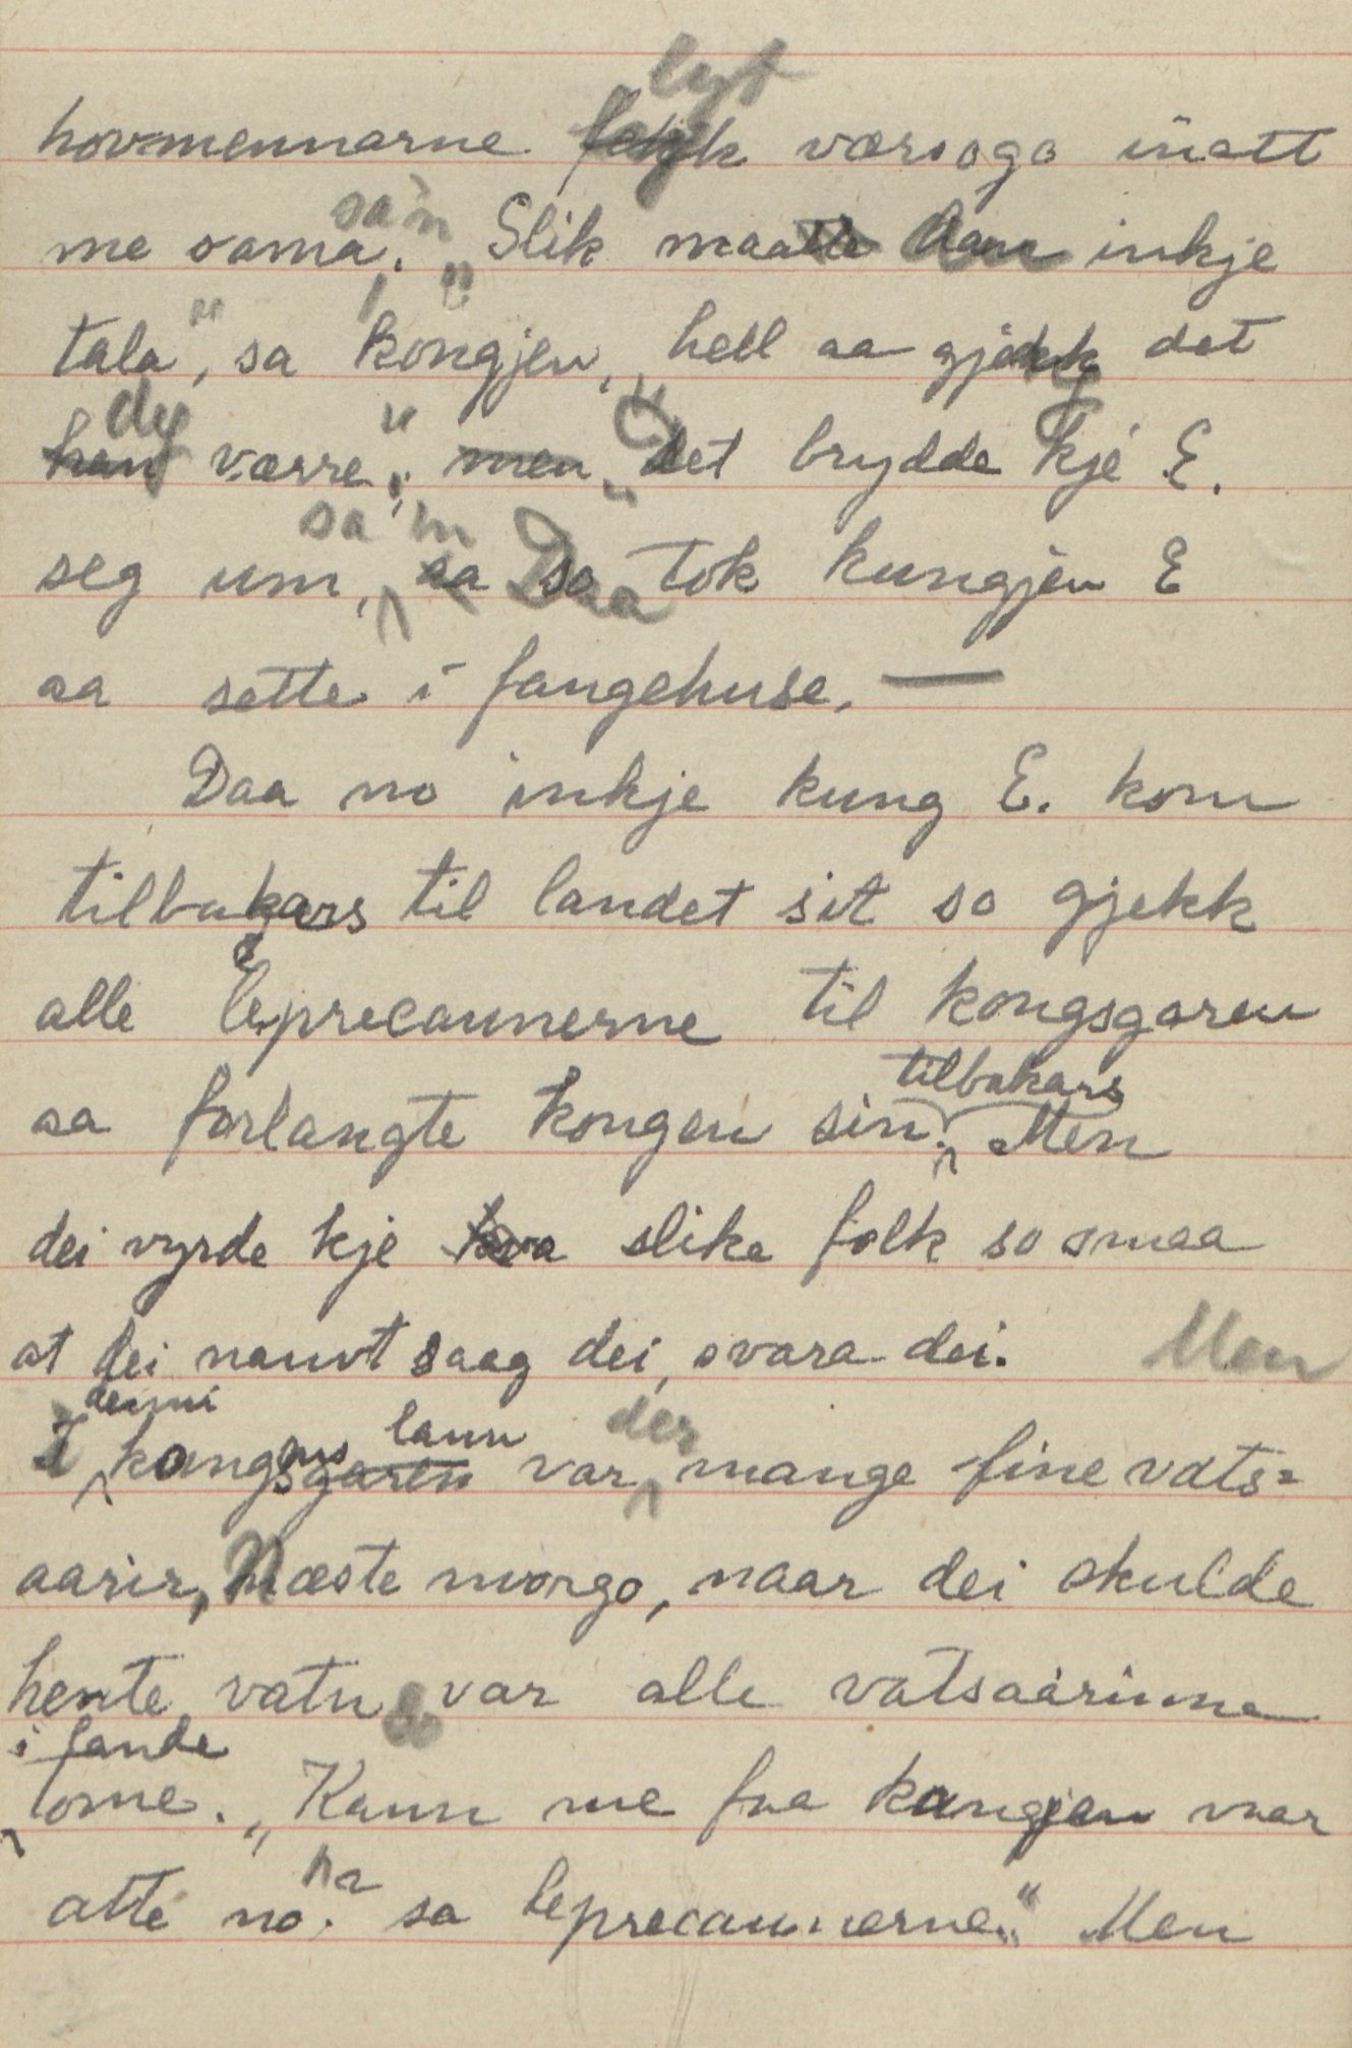 lyt
hovmennarne fekk værsogo inatt
sa'n
me sama. „Slik maatte han inkje
tala", sa kongjen, hell aa gjekk det
dy
han værre", men „det brydde kje E.
sa'n
seg um, aa so Daa tok kungjen E
aa sette i fangehuse. —
Daa no inkje kung E. kom
tilbakars til landet sit so gjekk
alle leprecaunerne til kongsgaren
tilbakars
aa forlangte kongen sin. Men
dei vyrde kje hva slike folk so smaa
at dei nauvt saag dei, svara dei. Men
denni lann der
I kongsgaren var mange fine vats=
aarir, Næste morgo, naar dei skulde
hente vatn so var alle vatsaarinne
i lande
tome. „Kann me faa kongjen vaar
ha
atte no. sa leprecaunerne." Men